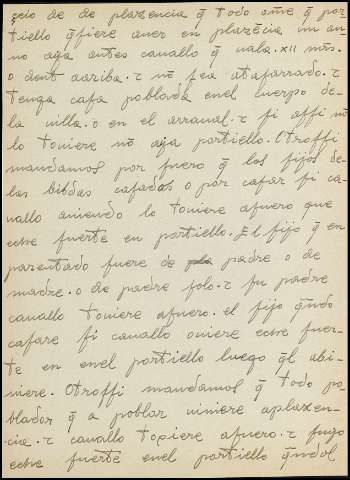 çeio de de plazencia q̃ todo om̃e q̃ por
tiello q̃fiere auer en plazẽcia un an-
no aya antes cauallo q̃ uala .xii m̃rs.
o dent arriba. τ nõ sea ataffarrado. τ
tenga casa poblada enel cuerpo de-
la uilla. o en el arraual. τ si assi nõ
lo touiere nõ aya portiello. Otrossi
mandamos por fuero q̃ los fijos de-
las bibdas casadas o por casar si ca-
uallo auiendo lo touiere afuero que
eche suerte en portiello. El fijo q̃ en
parentado fuere de padre o de
madre. o de padre solo. τ su padre
cauallo touiere afuero. el fijo q̃ndo
casare si cauallo ouiere eche suer-
te en enel portiello luego q̃l abi-
niere. Otrossi mandamos q̃ todo po-
blador q̃ a poblar uiniere aplazen-
cia. τ cauallo touiere afuero. τ fuego
eche suerte enel portiello q̃ndol